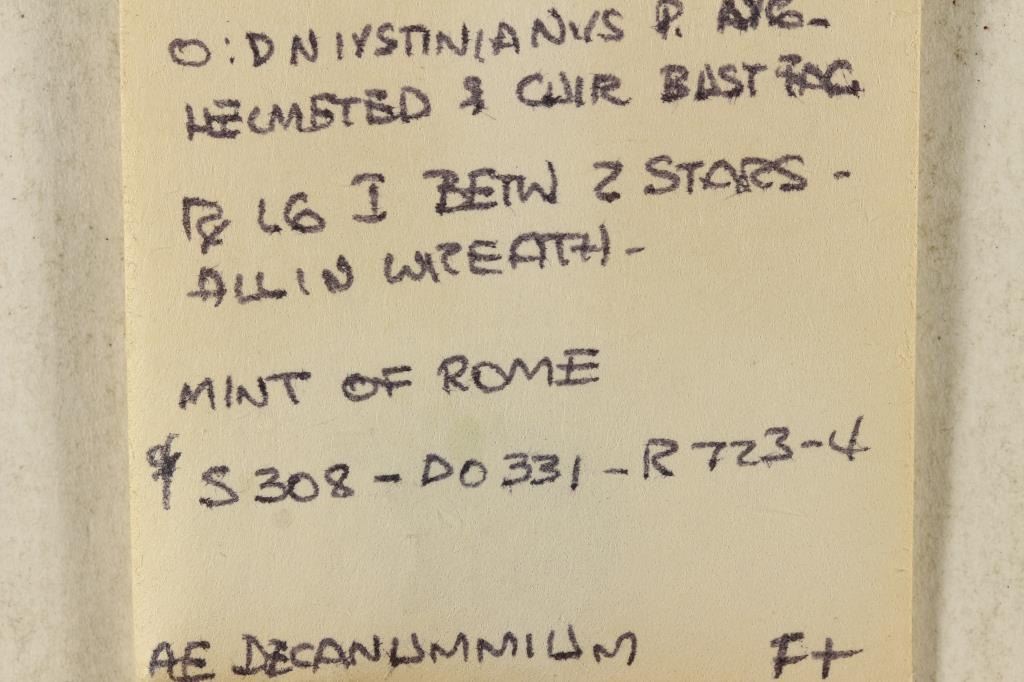 O: D N IVSTINIANVS P. AVG-
HELMETED & CUIR BUST FACG
R LG I BETW 2 STARS -
ALL IN WREATH -
MINT OF ROME
S 308 - DO 331 - R 723-4
AE DECANUMMIUM F+